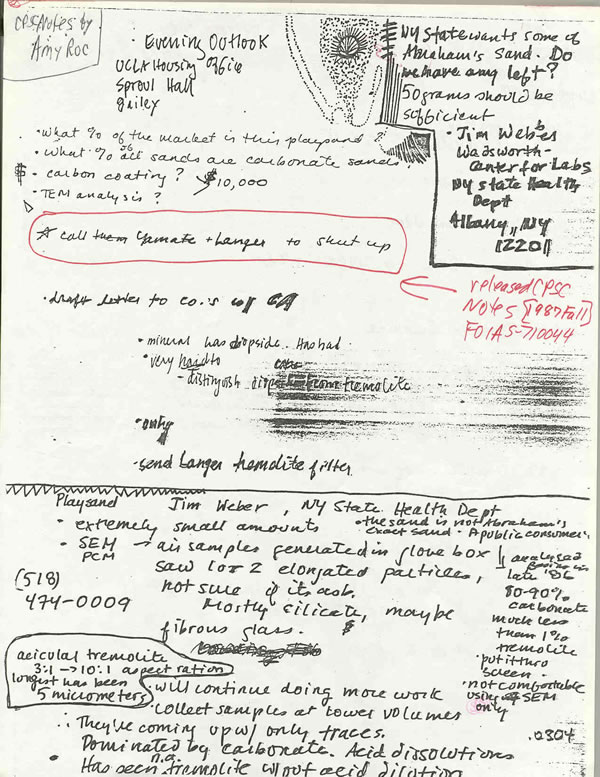 CPSC Notes by
Amy Roc
Evening Outlook
UCLA Housing Office
Sproul Hall
NY State wants some of
Abraham's Sand. Do
we have any left?
50 grams should be
sufficient
• Jim Weber
Wadsworth-
Center for Labs
NY State Health
Dept
Albany, NY
12201
• What % of the market is this playsand?
• What % of sands are carbonate sands?
$ • carbon coating? $10,000
• TEM analysis?
call them Yamate + Langer to shut up
released CPSC
Notes [1987 Fall]
FOIA S-710044
• draft letter to co.'s w/ CA
• mineral has
• very hard to
- distinguish from tremolite
• only
• send Langer tremolite filter
Playsand Jim Weber, NY State Health Dept
• extremely small amounts
• the sand is not Abraham's
exact sand. A public consumer's
• SEM → air samples generated in glove box
PCM saw 1 or 2 elongated particles,
not sure if its asb.
Mostly silicate, maybe
fibrous glass.
(518)
474-0009
analysed
late '86
80-90%
carbonate
much less
than 1%
tremolite
• put it thro
screen.
• not comfortable
using SEM
only
acicular tremolite
3:1 → 10:1 aspect ration
longest has been
5 micrometers
• will continue doing more work
• collect samples at lower volumes
∴ They're coming up w/ only traces.
Dominated by carbonate. Acid dissolutions
n.a.
• Has seen tremolite w/out acid dilution
.0304